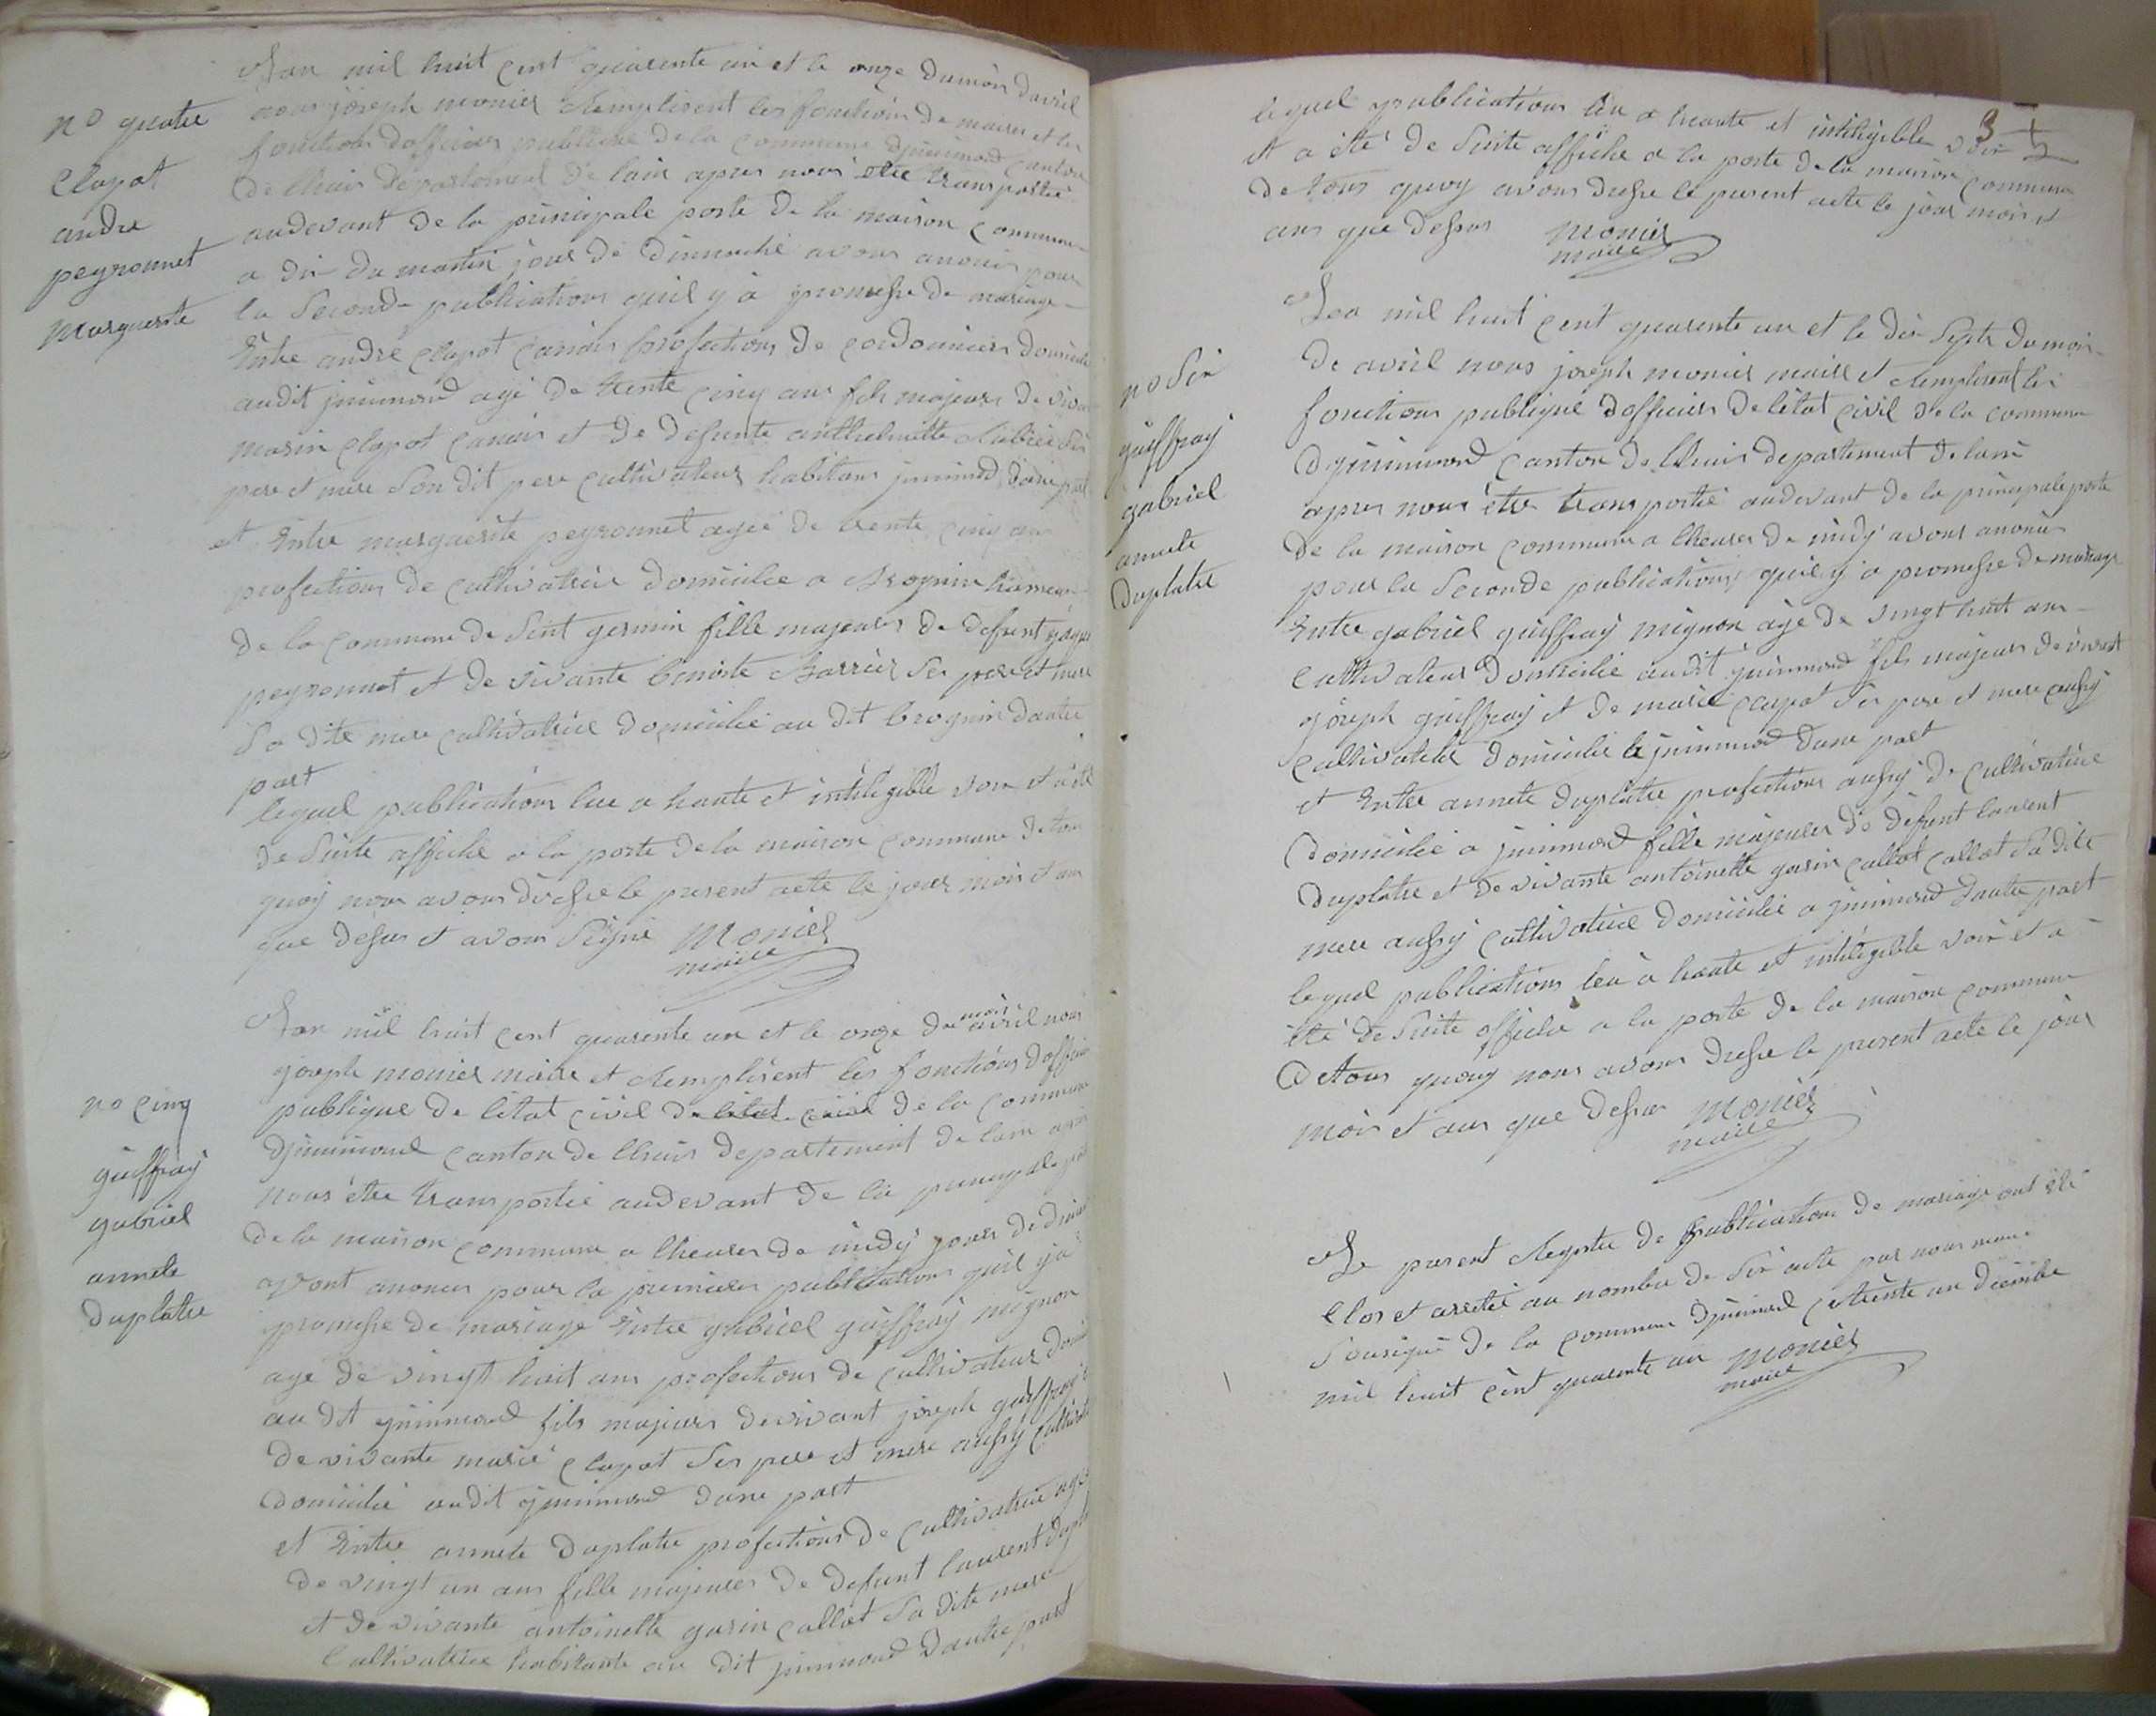 n° quatre
clapot
andre
peyronnet
Marguerite
L'an mil huit cent quarente un et le onze du mois d'avril
nous joseph monier Remplisent les fonctions de maires et les
fonctions d'officier publique de la commune d'jnnimond canton
de lhuis departement de lain apres nous etre transportée
audevant de la principale porte de la maison commune
a dix du matin jour de dimanche avons anonces pour
la Seconde publications quil y à promesse de mariage
Entre andré clapot canais profections de cordonniers domicilie
audit jnnimond agé de trente cinq ans fils majeurs de vivant
marin clapot canais et de defunte anthelmette Rubier Ses
pere et mere Son dit pere cultivateur habitans jnnimond d'une part
et Entre marguerite peyronnet agée de trente cinq ans
profections de cultivatrice domiciliee a Brognin hameau
de la commune de Sent germin fille majeures de defunt
peyronnet et de vivante benoite Barrier Ses pere et mere
Sa dite mere cultivatrice domicilié au dit brognin dautre
part
lequel publications lue a haute et inteligible voix et a été
de Suite affiché a la porte de la maison commune de tous
quoy nous avons dressé le present acte le jour mois et an
que dessus et avons Seigné Monier
maire
n° cinq
guiffray
gabriel
annete
duplatre
L'an mil huit cent quarente un et le onze du mois avril nous
joseph monier maire et Remplisent les fonctions d'officier
publique de l'état civil de l'état civil de la commune
d'jnnimond canton de lhuis departement de lain apres
nous étre transportée audevant de la principale porte
de la maison commune a lheures de midy jours de dimanche
avont anonces pour la premieres publications quil y a
promesse de mariage Entre gabriel guiffray mignon
agé de vingt huit ans profections de cultivateur
au dit jnnimond fils majeurs de vivant joseph guiffray et
de vivante marie clapot Ses pere et mere aussy
domicilié audit jnnimond dune part
et Entre annete duplatre profections de cultivatrice agée
de vingt un ans fille majeures de defunt laurent
et de vivante antoinette garin callat Sa dite mere
cultivatrice habitante au dit jnnimond dautre part
3
lequel publications leu a haute et intiligible voix
et a été de Suite affiche a la porte de la maison commune
de tous quoy avons dresse le present acte le jour mois et
ans que dessus Monier
maire
n° Six
guiffray
gabriel
annete
Duplatre
Lan mil huit cent quarente un et le dix Septs du mois
de avril nous joseph monier maire et Remplisent les
fonctions publique d'officier de l'état civil de la commune
d'jnnimond canton de lhuis departement de lain
apres nous étre transportée audevant de la principale porte
de la maison commune a lheures de midy avons anonces
pour la Seconde publications quil y a promesse de mariage
Entre gabriel guiffray mignon agé de vingt huit ans
cultivateur domicilié audit jnnimond fils majeur de vivant
joseph guiffray et de marie clapot Ses pere et mere aussy
cultivateur domicilié jnnimond dune part
et Entre annete duplatre profections aussy de cultivatrice
domicilié a jnnimond fille majeures de défunt laurent
duplatre et de vivante antoinette garin callat callat Sa dite
mere aussy cultivatrice domicilié a jnnimond dautre part
lequel publications leu à haute et intiligible voix et a
été de Suite affiche a la porte de la maison commune
de tous quoy nous avons dresse le present acte le jour
mois et ans que dessus Monier
maire
Le present Registre de publications de mariage ont été
clos et arretée au nombre de Six acte par nous maire
Sousigné de la commune d'jnnimond ce trente un décembre
mil huit cent quarente un Monier
maire